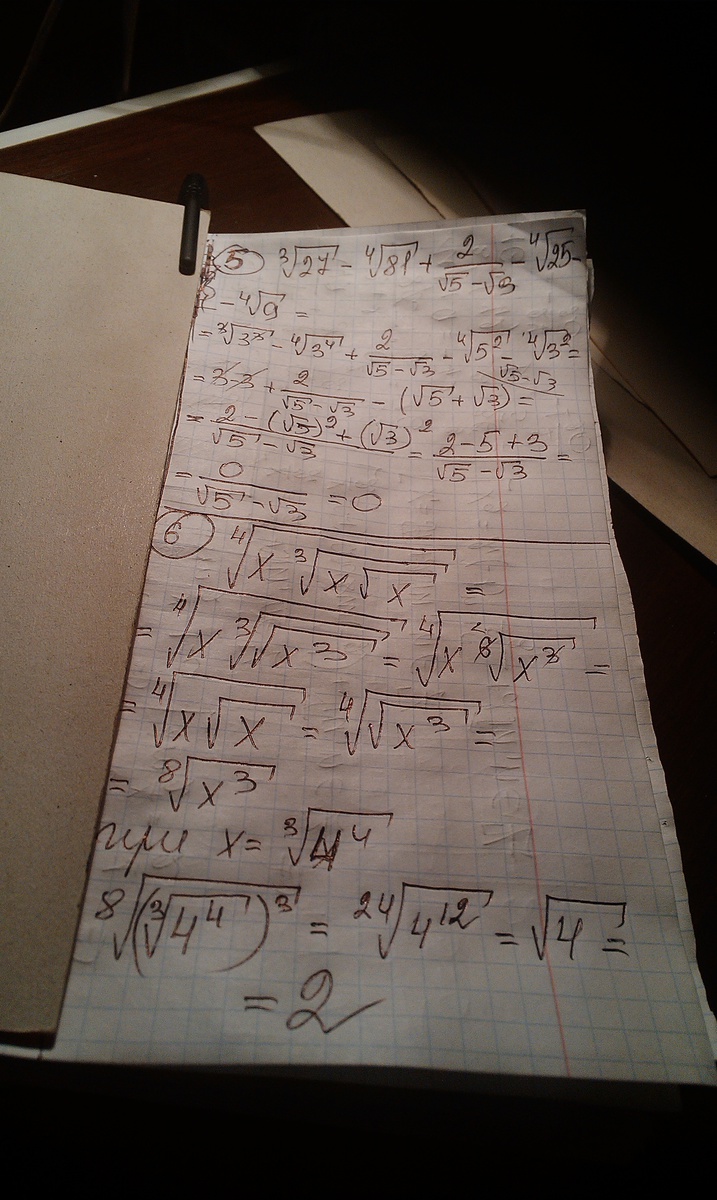 5 ∛27 - ∜81 + 2/(√5 - √3) - ∜25 -
- ∜9 =
= ∛3³ - ∜3⁴ + 2/(√5 - √3) - ∜5² - ∜3² =
= 3 - 3 + 2/(√5 - √3) - (√5 + √3) = √5 - √3
= (2 - (√5)² + (√3)²)/(√5 - √3) = (2 - 5 + 3)/(√5 - √3) =
= 0/(√5 - √3) = 0
6 ∜(x ∛(x √x)) =
= ∜(x ∛(√(x³))) = ∜(x ⁶√(x³)) =
= ∜(x √x) = ∜(√(x³)) =
= ⁸√(x³)
при x = ∛(4⁴)
⁸√((∛(4⁴))³) = ²⁴√(4¹²) = √4 =
= 2